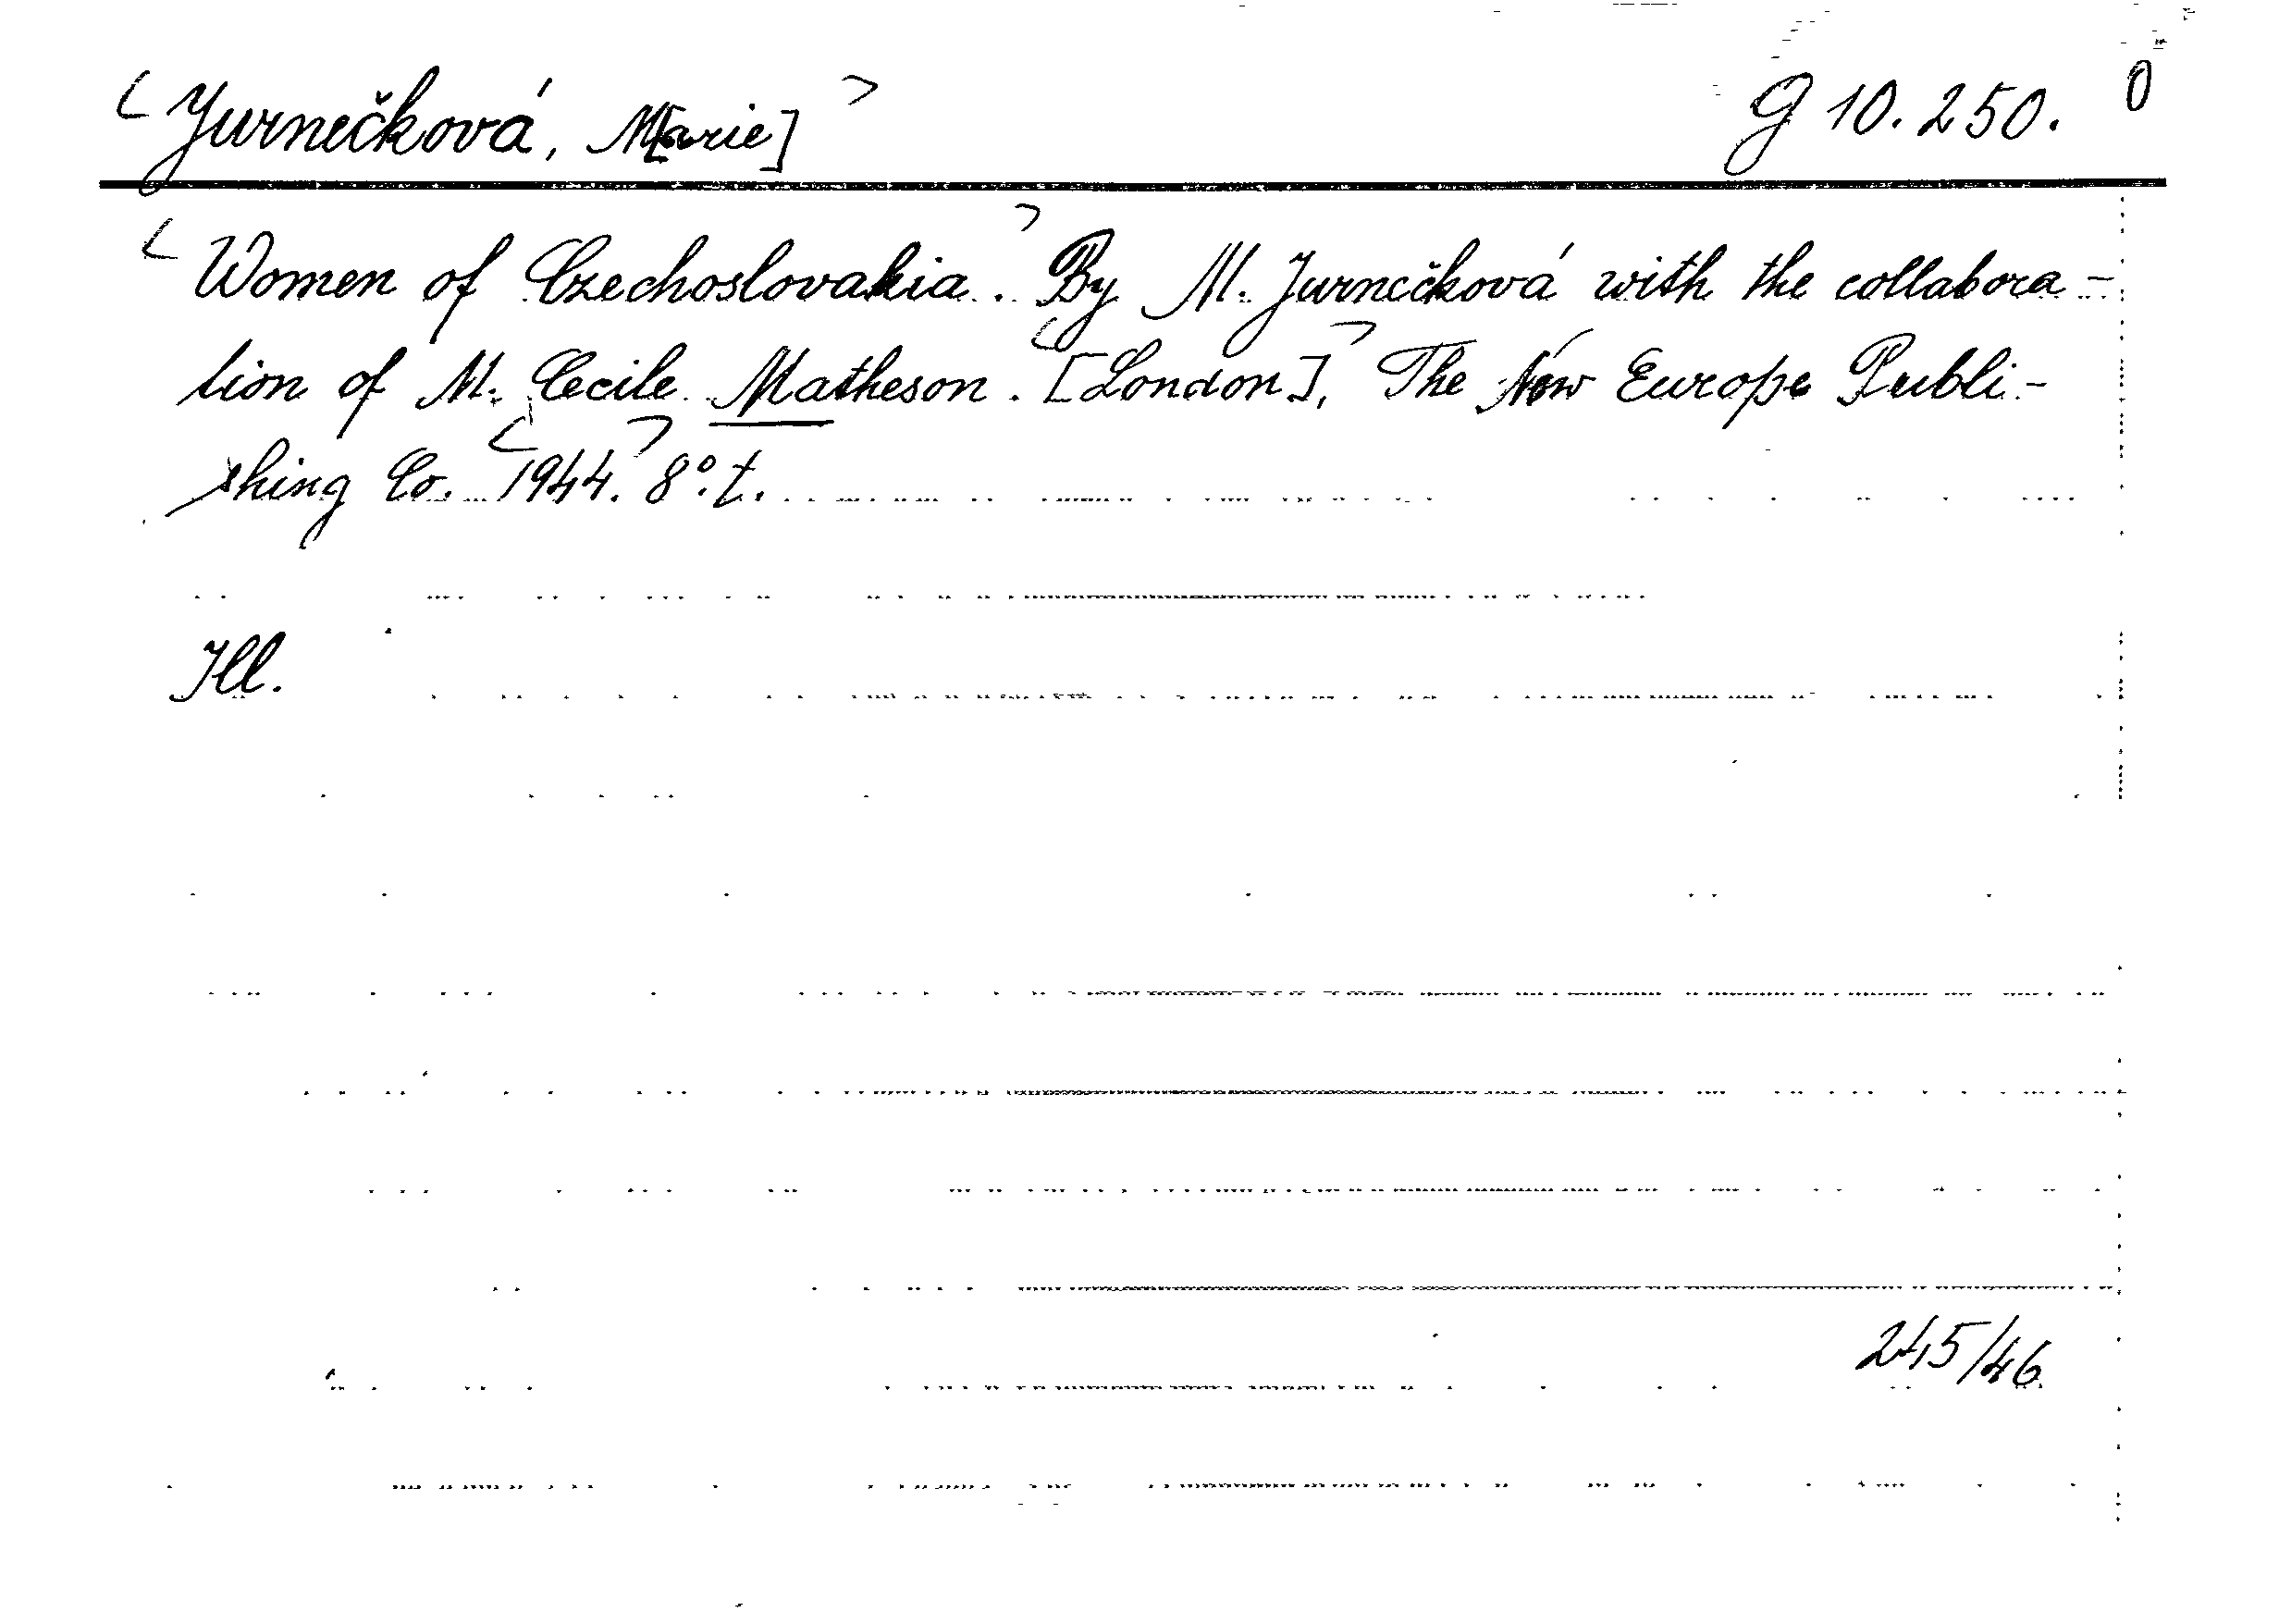 <Jurnečková, M[arie]> G 10.250. 0
<Women of Czechoslovakia.> By M. Jurnečková with the collabora-
tion of M. Cecile Matheson. <[London],> The New Europe Publi-
shing Co. <1944.> 8°. t.
Ill.
245/46